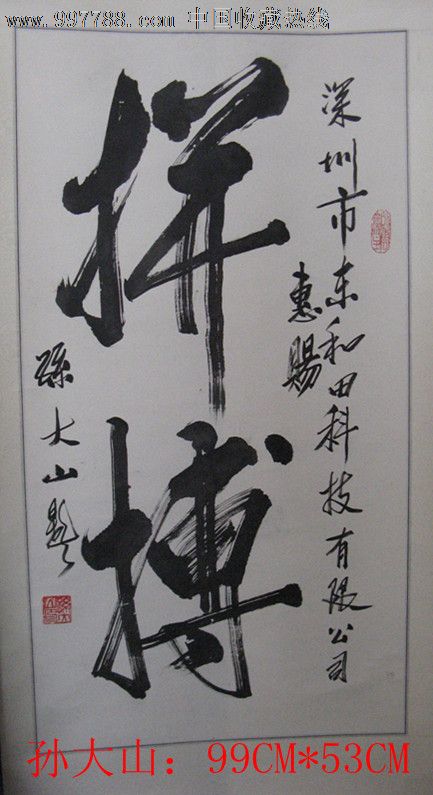 www.997788.com 中国收藏热线
深圳市东和田科技有限公司
惠赐
拼搏
孙大山题
孙大山：99CM*53CM